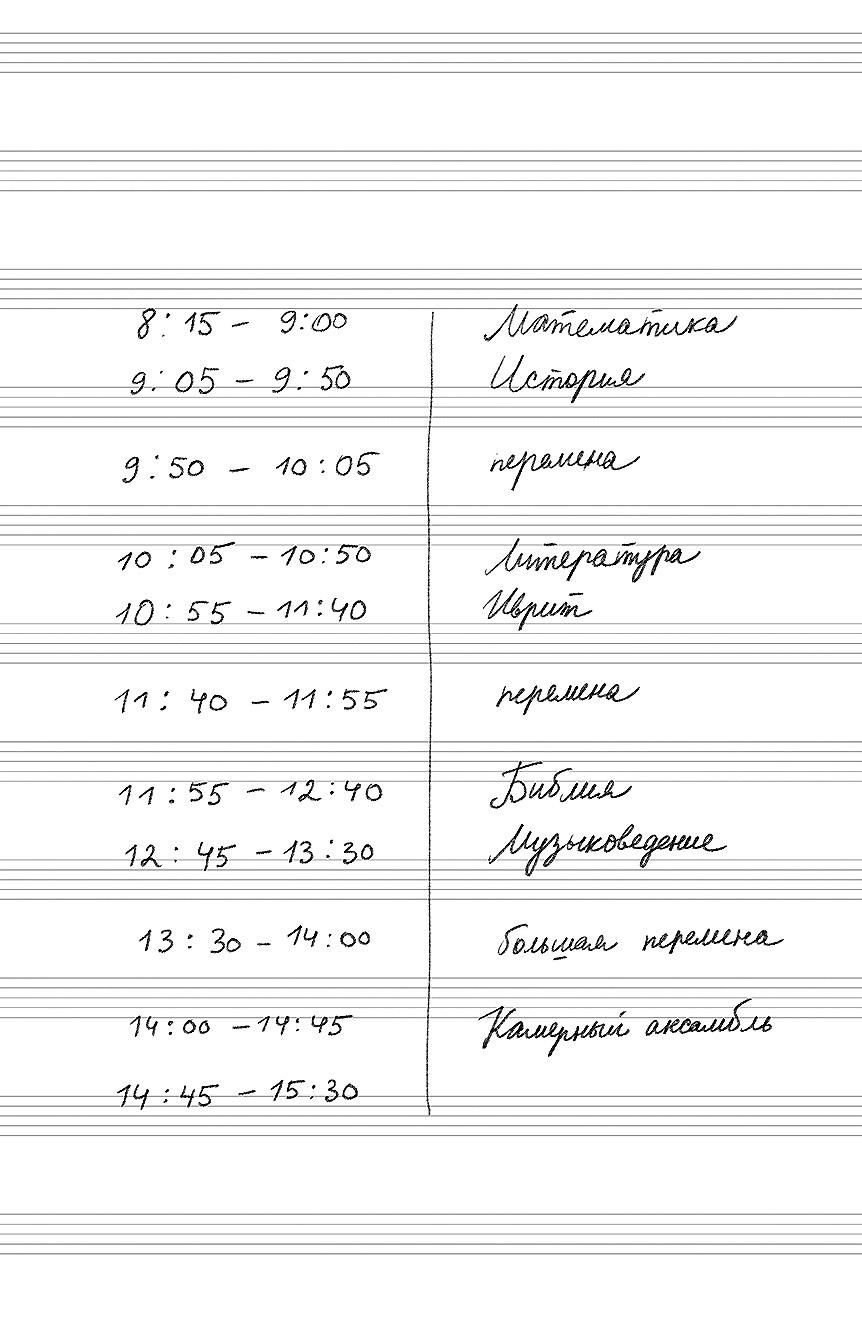 8:15 – 9:00 Математика
9:05 – 9:50 История
9:50 – 10:05 перемена
10:05 – 10:50 Литература
10:55 – 11:40 Иврит
11:40 – 11:55 перемена
11:55 – 12:40 Библия
12:45 – 13:30 Музыковедение
13:30 – 14:00 большая перемена
14:00 – 14:45 Камерный ансамбль
14:45 – 15:30